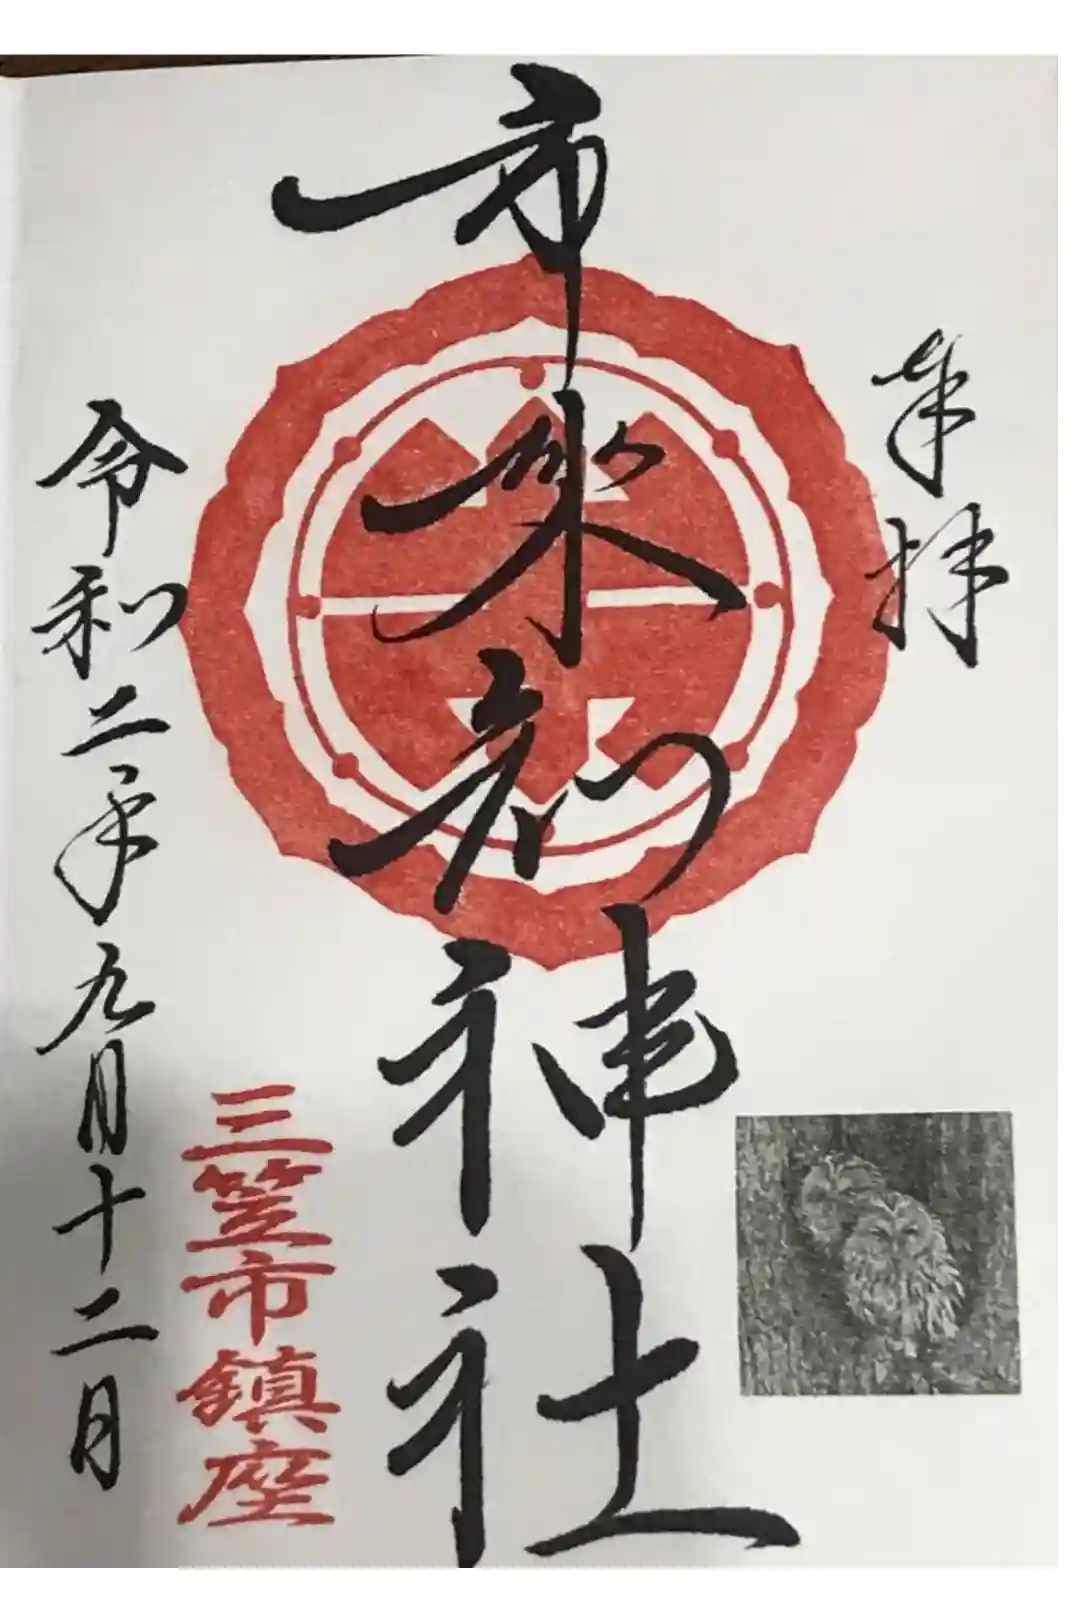 奉拝
市来知神社
三笠市鎮座
令和二年九月十二日